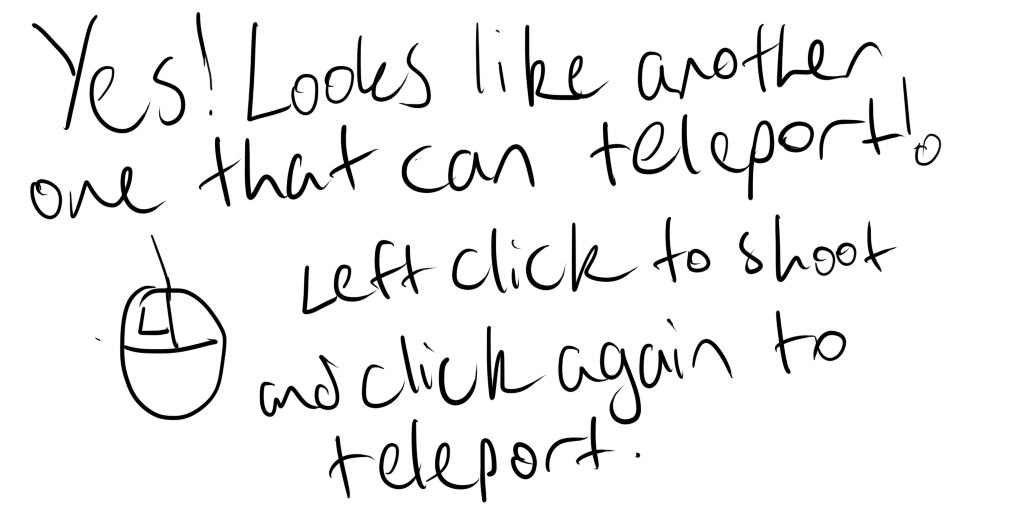 Yes! Looks like another
one that can teleport!
L
Left click to shoot
and click again to
teleport.